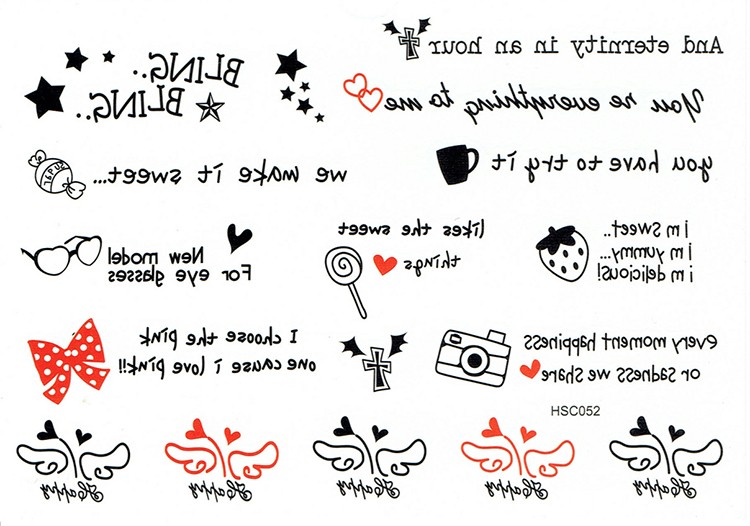 And eternity in an hour
BLING..
BLING..
You're everything to me
you have to try it
we make it sweet...
i m sweet..
i m yummy...
i m delicious!
likes the sweet
things
New model
For eye glasses
every moment happiness
or sadness we share
I choose the pink
one cause i love pink!!
HSC052
Happy
Happy
Happy
Happy
Happy